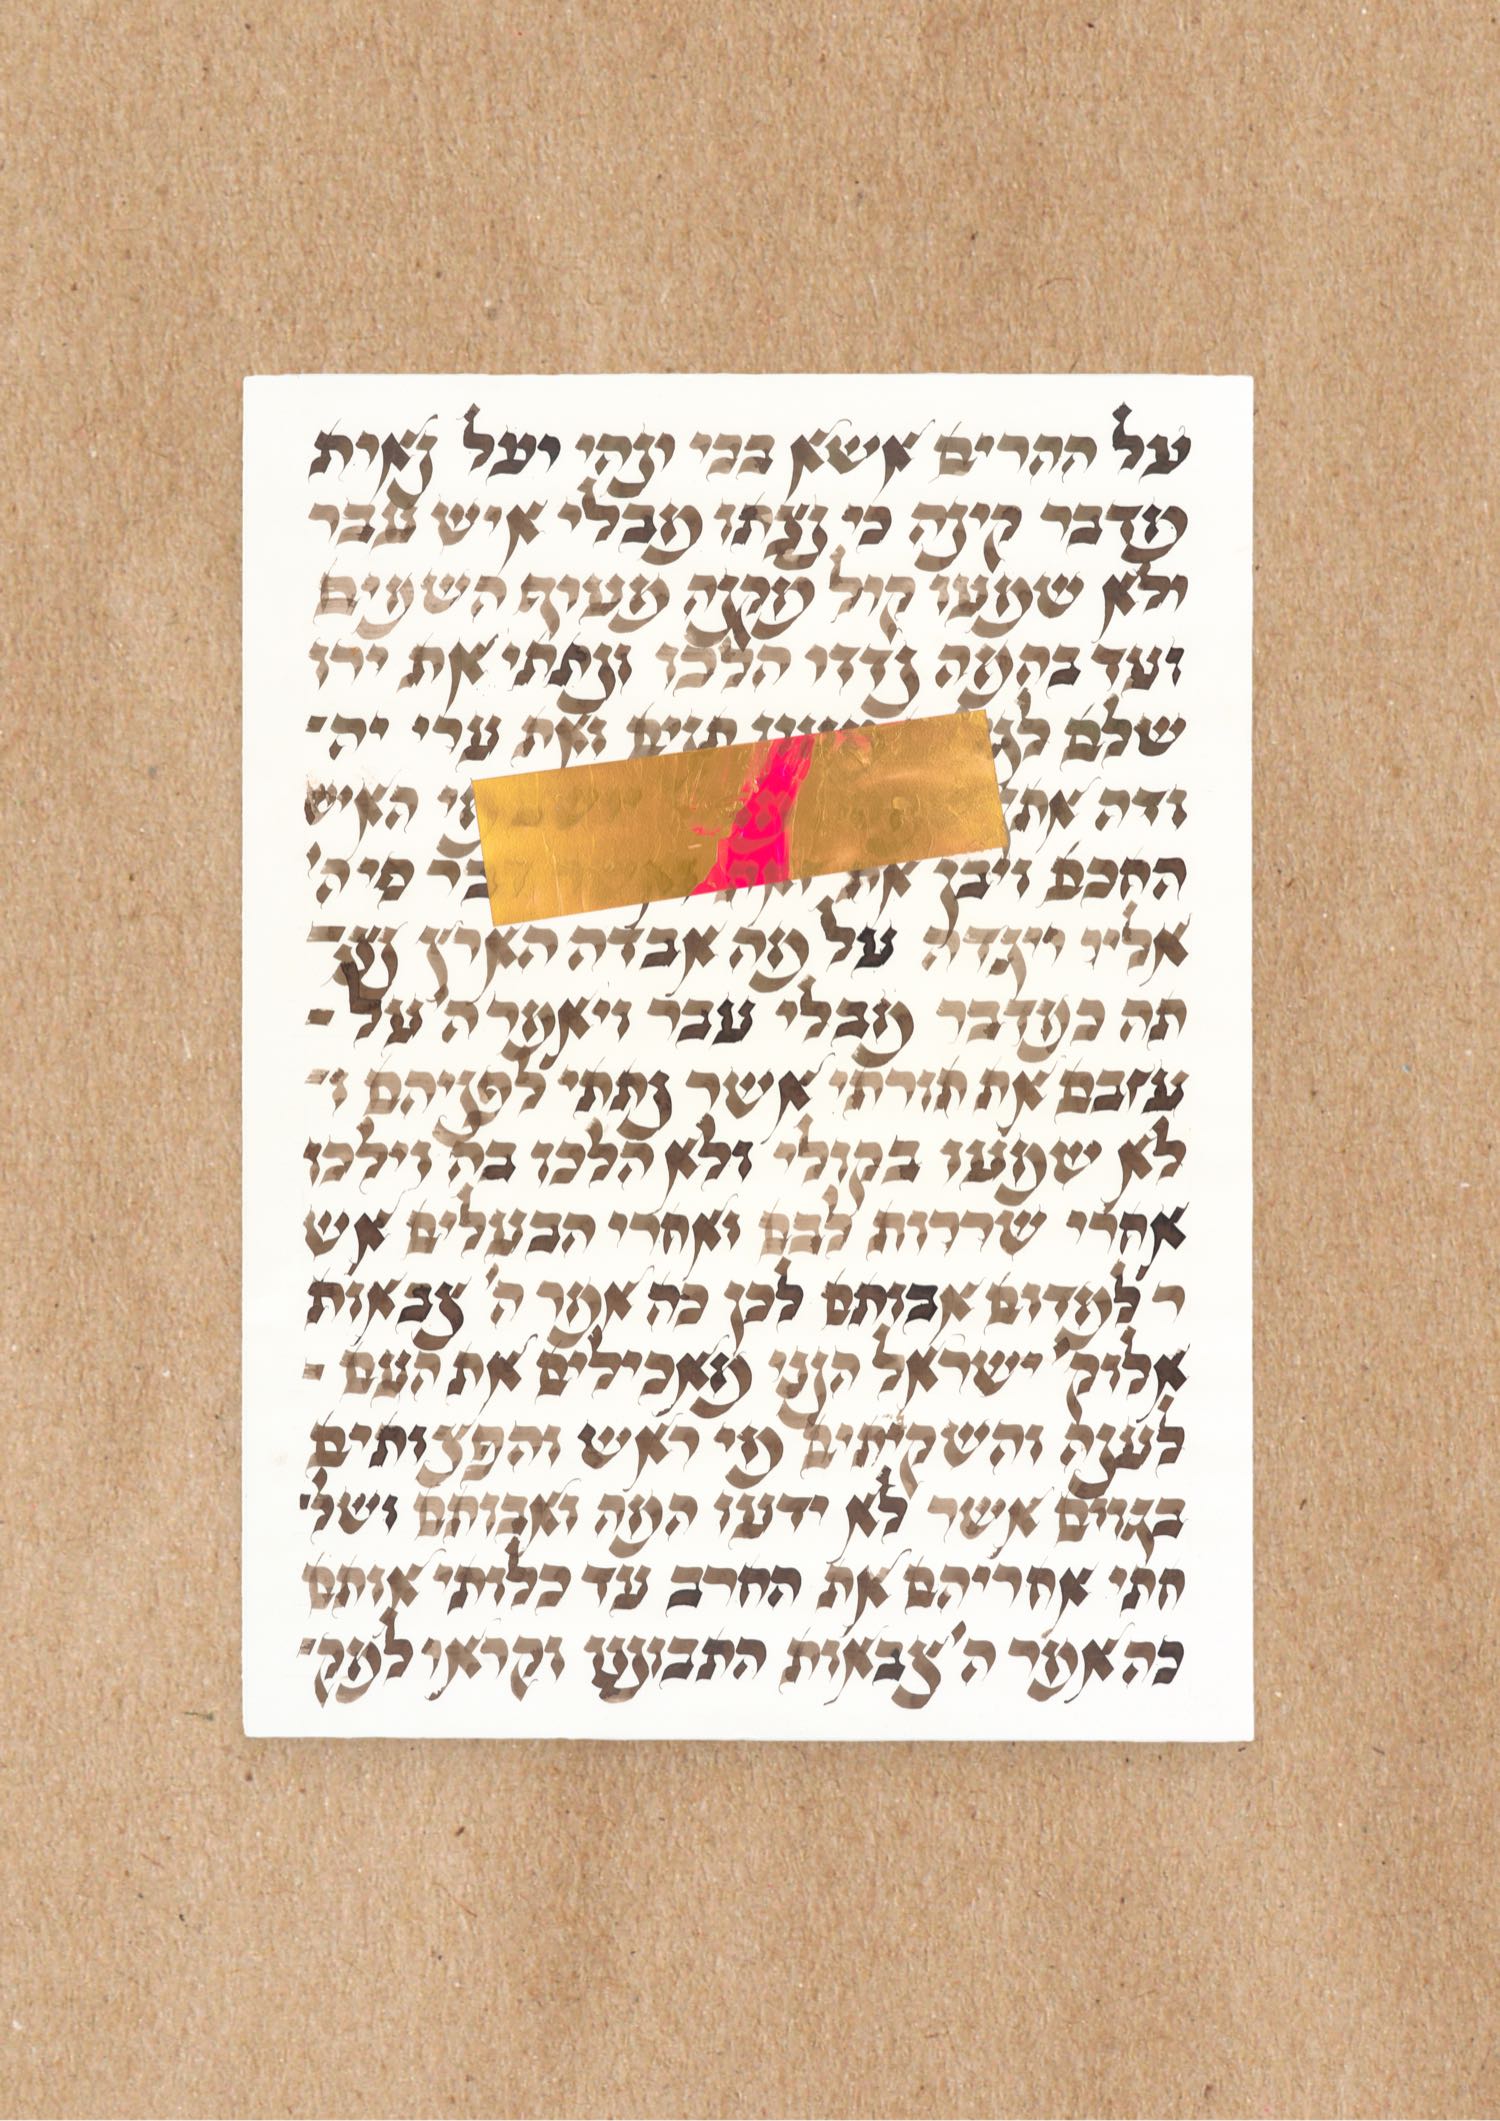 על ההרים אשא בכי ונהי ועל נאות
מדבר קינה כי נצתו מבלי איש עבר
ולא שמעו קול מקנה מעוף השמים
ועד בהמה נדדו הלכו ונתתי את ירו
שלם תנים ואת ערי יה־
ודה האיש
החכם ויבן את דבר פי ה'
אליו ויגדה על מה אבדה הארץ נצ־
תה כמדבר מבלי עבר ויאמר ה' על -
עזבם את תורתי אשר נתתי לפניהם ו־
לא שמעו בקולי ולא הלכו בה וילכו
אחרי שררות לבם ואחרי הבעלים אש
ר למדום אבותם לכן כה אמר ה' צבאות
אלוק' ישראל הנני מאכילים את העם -
לענה והשקיתים מי ראש והפצותים
בגוים אשר לא ידעו המה ואבותם ושל־
חתי אחריהם את החרב עד כלותי אותם
כה אמר ה' צבאות התבוננו וקראו למק־